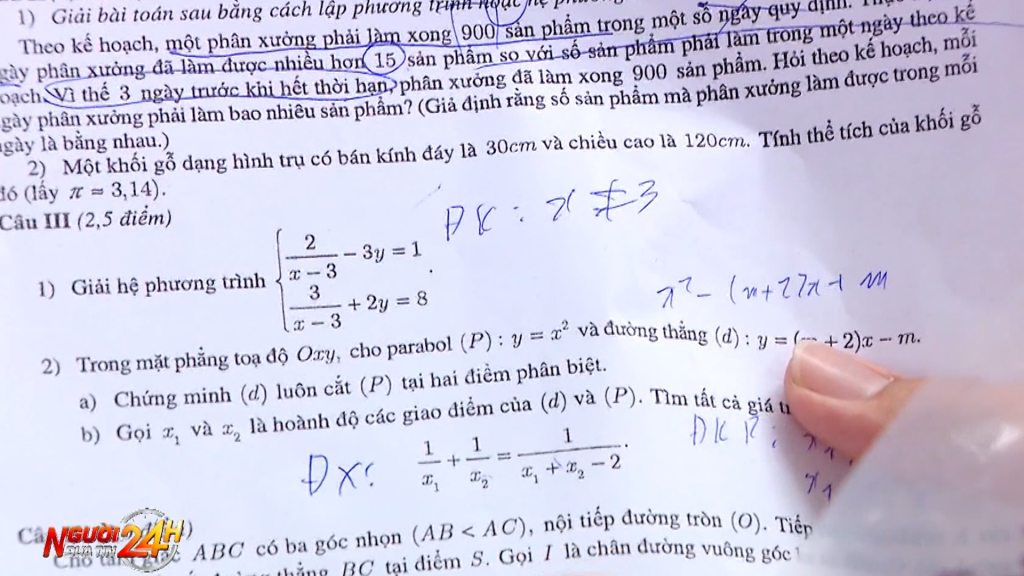 1) Giải bài toán sau bằng cách lập phương trình hoặc hệ
Theo kế hoạch, một phân xưởng phải làm xong 900 sản phẩm trong một số ngày quy định.
gày phân xưởng đã làm được nhiều hơn 15 sản phẩm so với số sản phẩm phải làm trong một ngày theo kế
oạch. Vì thế 3 ngày trước khi hết thời hạn, phân xưởng đã làm xong 900 sản phẩm. Hỏi theo kế hoạch, mỗi
gày phân xưởng phải làm bao nhiêu sản phẩm? (Giả định rằng số sản phẩm mà phân xưởng làm được trong mỗi
ngày là bằng nhau.)
2) Một khối gỗ dạng hình trụ có bán kính đáy là 30cm và chiều cao là 120cm. Tính thể tích của khối gỗ
đó (lấy π ≈ 3,14).
Câu III (2,5 điểm)
ĐK: x ≠ 3
1) Giải hệ phương trình { 2/(x − 3) − 3y = 1
3/(x − 3) + 2y = 8 .
x² − (m+2)x + m
2) Trong mặt phẳng toạ độ Oxy, cho parabol (P) : y = x² và đường thẳng (d) : y = (m + 2)x − m.
a) Chứng minh (d) luôn cắt (P) tại hai điểm phân biệt.
b) Gọi x₁ và x₂ là hoành độ các giao điểm của (d) và (P). Tìm tất cả giá t
ĐX: 1/x₁ + 1/x₂ = 1/(x₁ + x₂ − 2).
ABC có ba góc nhọn (AB < AC), nội tiếp đường tròn (O). Tiếp
thẳng BC tại điểm S. Gọi I là chân đường vuông góc
NGƯỜI ĐƯA TIN 24H